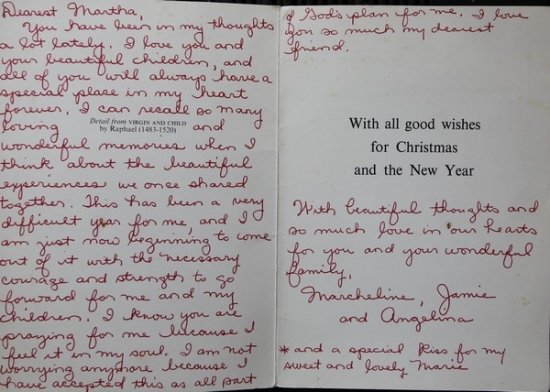 Dearest Martha,
You have been in my thoughts
a lot lately. I love you and
your beautiful children, and
all of you will always have a
special place in my heart
forever. I can recall so many
loving and
Detail from VIRGIN AND CHILD
by Raphael (1483-1520)
wonderful memories when I
think about the beautiful
experiences we once shared
together. This has been a very
difficult year for me, and I
am just now beginning to come
out of it with the necessary
courage and strength to go
forward for me and my
children. I know you are
praying for me because I
feel it in my soul. I am not
worrying anymore because I
have accepted this as all part
of God's plan for me. I love
you so much my dearest
friend.
With all good wishes
for Christmas
and the New Year
With beautiful thoughts and
so much love in our hearts
for you and your wonderful
family,
Marcheline, Jamie
and Angelina
* and a special kiss for my
sweet and lovely Marie